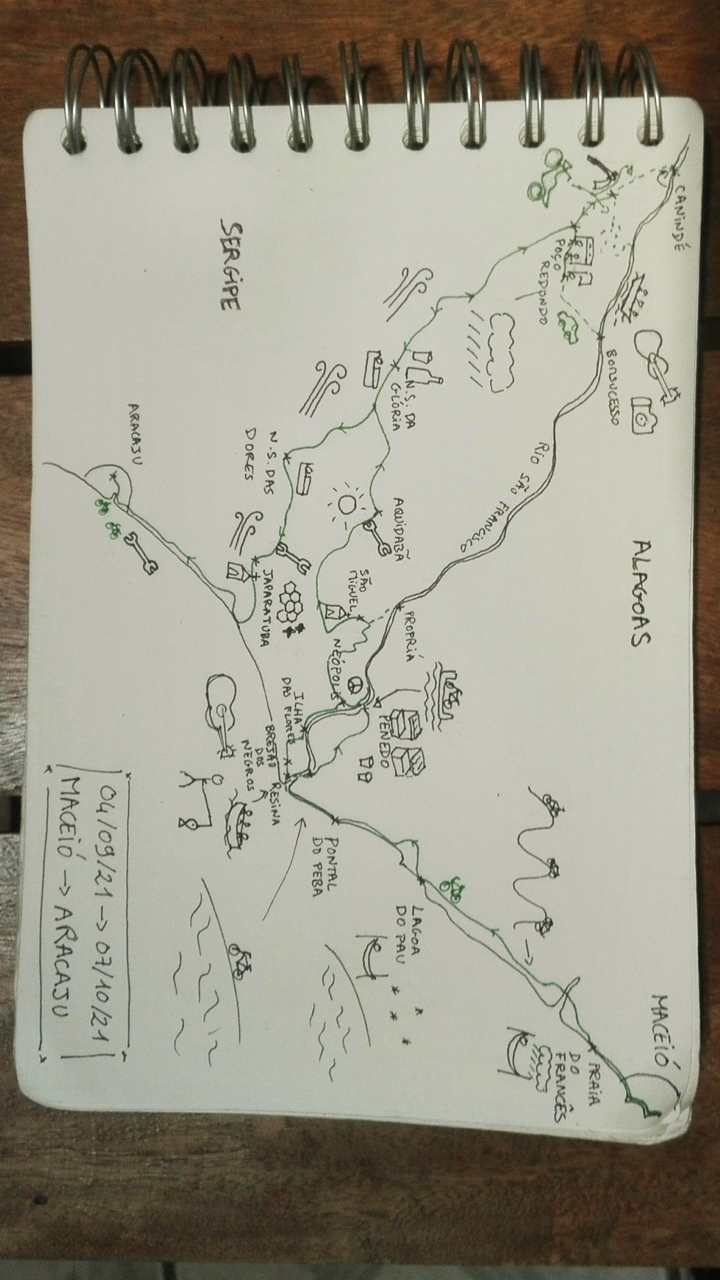 CANINDÉ
POÇO
REDONDO
BONSUCESSO
RIO SÃO FRANCISCO
ALAGOAS
SERGIPE
N.S. DA
GLÓRIA
N.S. DAS
DORES
AQUIDABÃ
ARACAJU
JAPARATUBA
SÃO
MIGUEL
PROPRIÁ
NEÓPOLIS
PENEDO
ILHA
DAS FLORES
BREJÃO
DOS
NEGROS
RESINA
PONTAL
DO PEBA
LAGOA
DO PAU
PRAIA
DO
FRANCÊS
MACEIÓ
04/09/21 → 07/10/21
MACEIÓ → ARACAJU